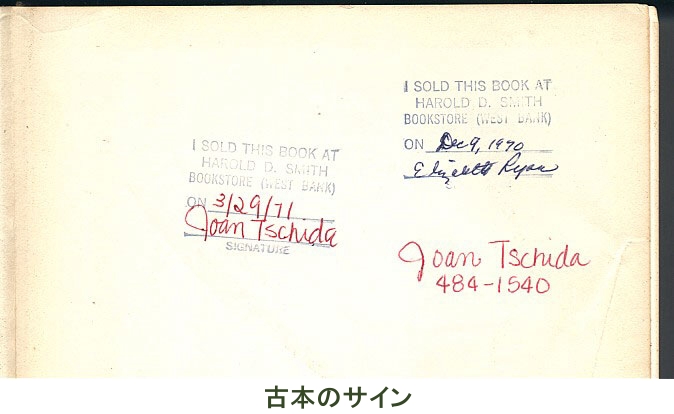 I SOLD THIS BOOK AT
HAROLD D. SMITH
BOOKSTORE (WEST BANK)
ON Dec 9, 1970
Elizabeth Ryan
I SOLD THIS BOOK AT
HAROLD D. SMITH
BOOKSTORE (WEST BANK)
ON 3/29/71
Joan Tschida
SIGNATURE
Joan Tschida
484-1540
古本のサイン